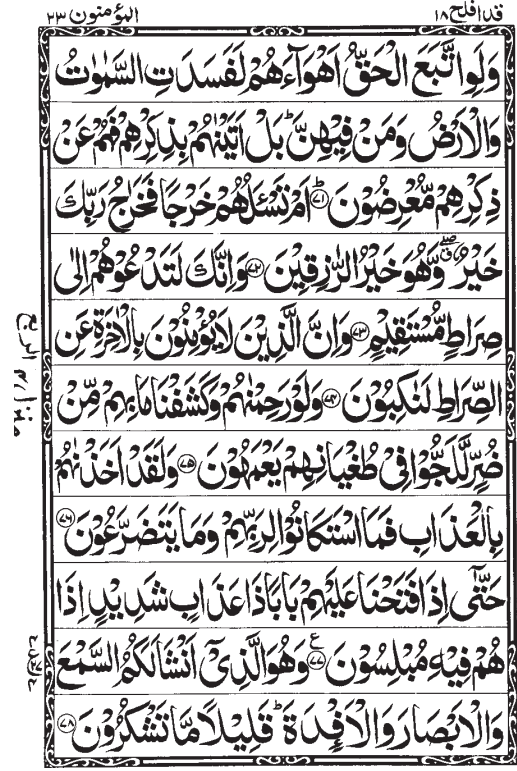 قد افلح ١٨
المؤمنون ٢٣
وَلَوِ اتَّبَعَ الْحَقُّ اَهْوَآءَهُمْ لَفَسَدَتِ السَّمٰوٰتُ
وَالْاَرْضُ وَمَنْ فِيْهِنَّ ؕ بَلْ اَتَيْنٰهُمْ بِذِكْرِهِمْ فَهُمْ عَنْ
ذِكْرِهِمْ مُّعْرِضُوْنَ ؕ ﴿٧١﴾ اَمْ تَسْئَلُهُمْ خَرْجًا فَخَرَاجُ رَبِّكَ
خَيْرٌ ۖ وَّهُوَ خَيْرُ الرّٰزِقِيْنَ ﴿٧٢﴾ وَاِنَّكَ لَتَدْعُوْهُمْ اِلٰى
صِرَاطٍ مُّسْتَقِيْمٍ ﴿٧٣﴾ وَاِنَّ الَّذِيْنَ لَا يُؤْمِنُوْنَ بِالْاٰخِرَةِ عَنِ
الصِّرَاطِ لَنٰكِبُوْنَ ﴿٧٤﴾ وَلَوْ رَحِمْنٰهُمْ وَكَشَفْنَا مَا بِهِمْ مِّنْ
ضُرٍّ لَّلَجُّوْا فِىْ طُغْيَانِهِمْ يَعْمَهُوْنَ ﴿٧٥﴾ وَلَقَدْ اَخَذْنٰهُمْ
بِالْعَذَابِ فَمَا اسْتَكَانُوْا لِرَبِّهِمْ وَمَا يَتَضَرَّعُوْنَ ﴿٧٦﴾
حَتّٰٓى اِذَا فَتَحْنَا عَلَيْهِمْ بَابًا ذَا عَذَابٍ شَدِيْدٍ اِذَا
هُمْ فِيْهِ مُبْلِسُوْنَ ﴿٧٧﴾ ع وَهُوَ الَّذِىْٓ اَنْشَاَ لَكُمُ السَّمْعَ
وَالْاَبْصَارَ وَالْاَفْئِدَةَ ؕ قَلِيْلًا مَّا تَشْكُرُوْنَ ﴿٧٨﴾